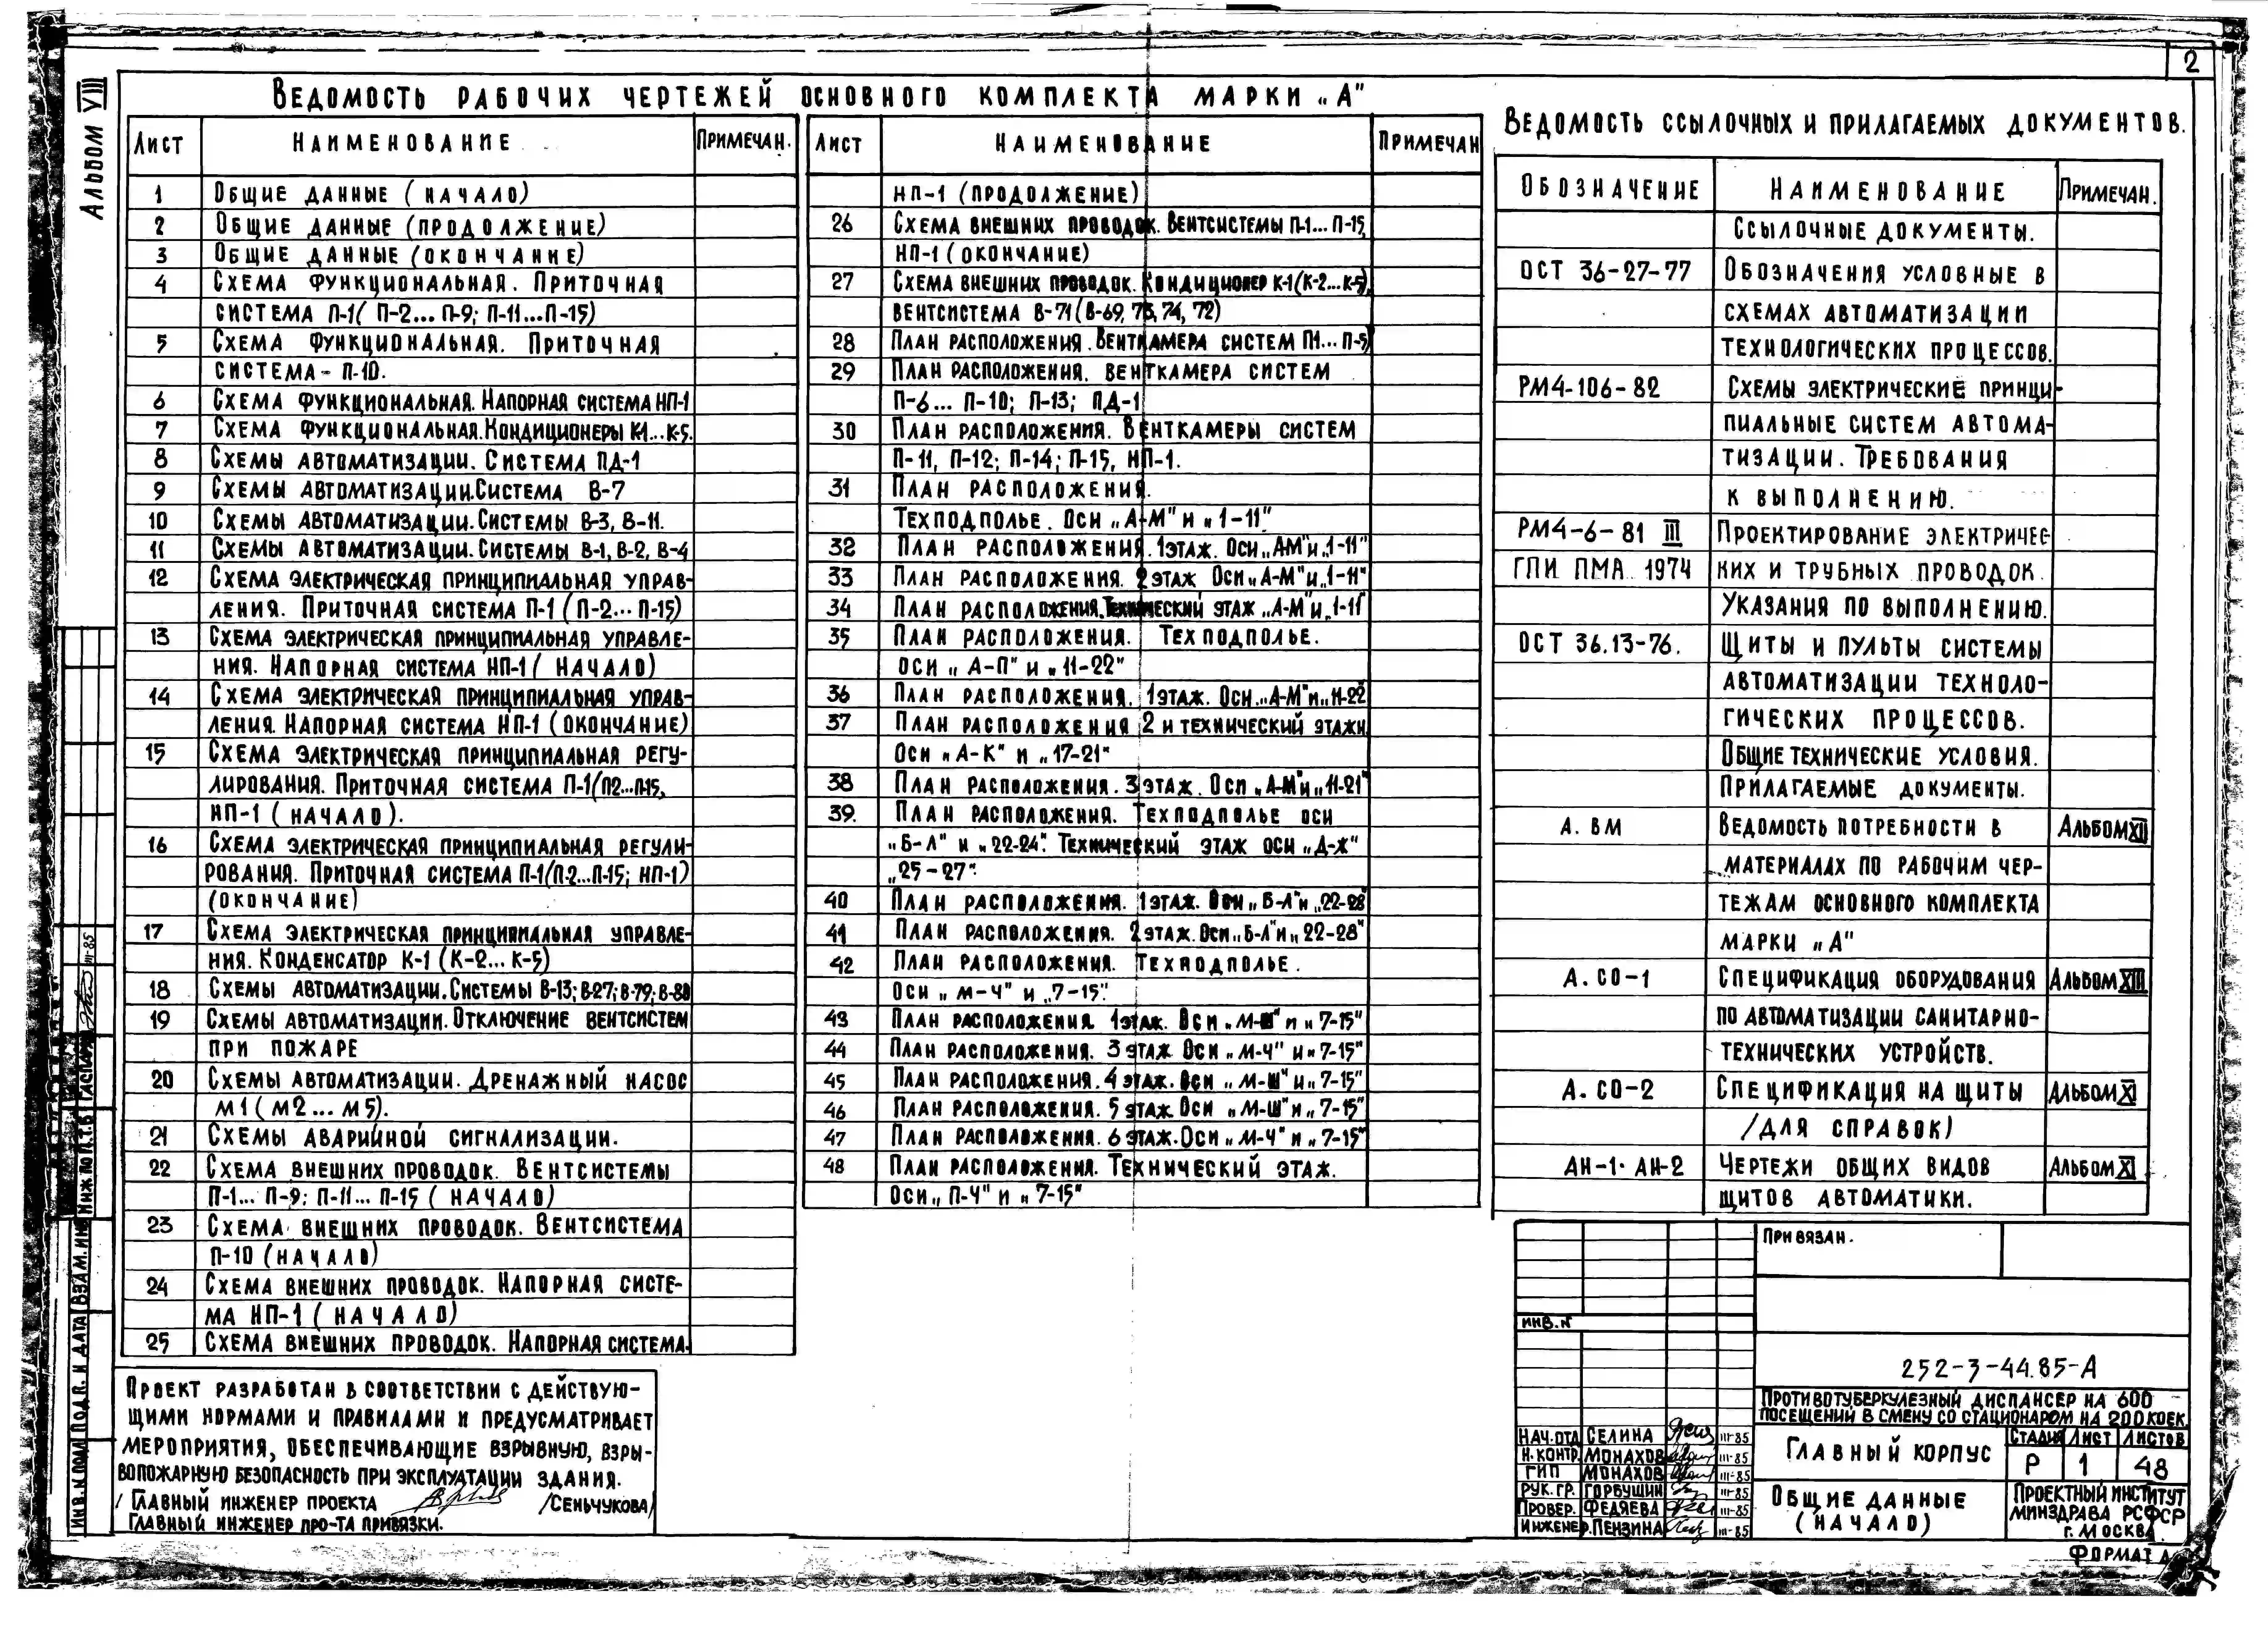 2
Альбом VIII
Ведомость рабочих чертежей основного комплекта марки „А"
Лист Наименование Примечан.
1 Общие данные (начало)
2 Общие данные (продолжение)
3 Общие данные (окончание)
4 Схема функциональная. Приточная
система П-1( П-2... П-9; П-11...П-15)
5 Схема функциональная. Приточная
система- П-10.
6 Схема функциональная. Напорная система НП-1
7 Схема функциональная.Кондиционеры К-1...К-5.
8 Схемы автоматизации. Система ПД-1
9 Схемы автоматизации.Система В-7
10 Схемы автоматизации.Системы В-3, В-11.
11 Схемы автоматизации.Системы В-1, В-2, В-4
12 Схема электрическая принципиальная управ-
ления. Приточная система П-1 (П-2... П-15)
13 Схема электрическая принципиальная управле-
ния. Напорная система НП-1 ( начало)
14 Схема электрическая принципиальная управ-
ления. Напорная система НП-1 (окончание)
15 Схема электрическая принципиальная регу-
лирования. Приточная система П-1(П2...П-15,
НП-1 (начало).
16 Схема электрическая принципиальная регули-
рования. Приточная система П-1(П-2...П-15; НП-1)
(окончание)
17 Схема электрическая принципиальная управле-
ния. Конденсатор К-1 (К-2... К-5)
18 Схемы автоматизации.Системы В-13; В-27; В-79; В-80
19 Схемы автоматизации. Отключение вентсистем
при пожаре
20 Схемы автоматизации. Дренажный насос
М1 (М2... М5).
21 Схемы аварийной сигнализации.
22 Схема внешних проводок. Вентсистемы
П-1... П-9; П-11... П-15 ( начало)
23 Схема внешних проводок. Вентсистема
П-10 (начало)
24 Схема внешних проводок. Напорная систе-
ма НП-1 ( начало)
25 Схема внешних проводок. Напорная система.
Лист Наименование Примечан
НП-1 (продолжение)
26 Схема внешних проводок. Вентсистемы П-1... П-15,
НП-1 (окончание)
27 Схема внешних проводок. Кондиционер К-1(К-2...К-5),
вентсистема В-71 (В-69, 73, 74, 72)
28 План расположения. Венткамера систем П1... П-5
29 План расположения. венткамера систем
П-6... П-10; П-13; ПД-1
30 План расположения. Венткамеры систем
П-11, П-12; П-14; П-15, НП-1.
31 План расположения.
Техподполье. Оси „А-М" и „1-11"
32 План расположения. 1этаж. Оси„А-М"и„1-11"
33 План расположения. 2 этаж Оси„А-М"и„1-11"
34 План расположения.Технический этаж „А-М"и„1-11"
35 План расположения. Техподполье.
оси „ А-П" и „11-22"
36 План расположения. 1этаж. Оси„А-М"и„11-22
37 План расположения 2 и технический этажи
Оси „А-К" и „17-21"
38 План расположения. 3 этаж. Оси „А-М"и„11-21"
39. План расположения. Техподполье оси
„Б-Л" и „22-24". Технический этаж оси „Д-Ж"
„25-27".
40 План расположения. 1этаж. Оси„Б-Л"и„22-28"
41 План расположения. 2этаж.Оси„Б-Л"и„22-28"
42 План расположения. Техподполье.
Оси „ М-Ч" и „7-15".
43 План расположения. 1этаж. Оси „М-Ш" и „7-15"
44 План расположения. 3 этаж Оси „М-Ч" и„7-15"
45 План расположения. 4 этаж. Оси „М-Ш"и„7-15"
46 План расположения. 5 этаж. Оси „М-Ш"и„7-15"
47 План расположения. 6 этаж.Оси „М-Ч" и „7-15"
48 План расположения. Технический этаж.
Оси„ П-Ч" и „7-15"
Ведомость ссылочных и прилагаемых документов.
Обозначение Наименование Примечан.
Ссылочные документы.
ОСТ 36-27-77 Обозначения условные в
схемах автоматизации
технологических процессов.
РМ4-106-82 Схемы электрические принци-
пиальные систем автома-
тизации. Требования
к выполнению.
РМ4-6-81 III Проектирование электричес-
ГПИ ПМА 1974 ких и трубных проводок.
Указания по выполнению.
ОСТ 36.13-76. Щиты и пульты системы
автоматизации техноло-
гических процессов.
Общие технические условия.
Прилагаемые документы.
А. ВМ Ведомость потребности в Альбом XII
материалах по рабочим чер-
тежам основного комплекта
марки „А"
А. СО-1 Спецификация оборудования Альбом XIII
по автоматизации санитарно-
технических устройств.
А. СО-2 Спецификация на щиты Альбом XI
/для справок)
АН-1. АН-2 Чертежи общих видов Альбом XI
щитов автоматики.
Проект разработан в соответствии с действую-
щими нормами и правилами и предусматривает
мероприятия, обеспечивающие взрывную, взры-
вопожарную безопасность при эксплуатации здания.
/ Главный инженер проекта /Сеньчукова/
Главный инженер про-та привязки.
Привязан.
инв. N
252-3-44.85-А
Противотуберкулезный диспансер на 600
посещений в смену со стационаром на 200 коек.
Нач.отд Селина III-85
Н.контр. Монахов III-85
ГИП Монахов III-85
Рук. гр. Горбушин III-85
Провер. Федяева III-85
Инженер. Пензина III-85
Главный корпус
Стадия Лист Листов
Р 1 48
Общие данные
(начало)
Проектный институт
Минздрава РСФСР
г. Москва
Формат А
Инв. N подл Подп. и дата Взам. инв
Инж. по П.Т.Б Гаспарян III-85